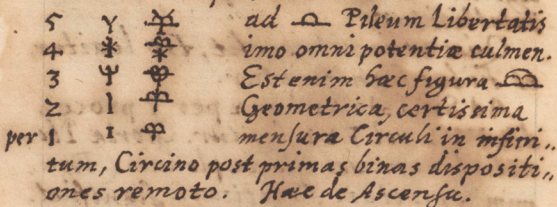 5 ad Pileum Libertatis
4 imo omnipotentiæ culmen.
3 Est enim hæc figura
2 Geometrica, certissima
per 1 1 mensuræ Circuli in infini„
tum, Circino post primas binas dispositi„
ones remoto. Hæc de Ascensu.